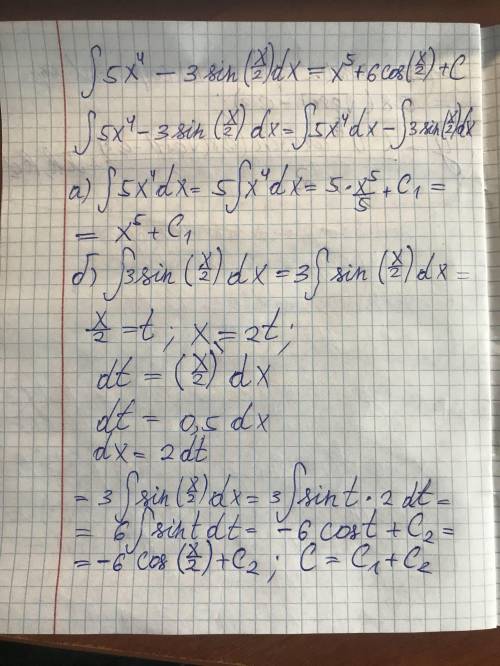 ∫5x⁴ − 3 sin(x/2)dx = x⁵ + 6cos(x/2) + C
∫5x⁴ − 3 sin(x/2) dx = ∫5x⁴dx − ∫3 sin(x/2)dx
а) ∫5x⁴dx = 5∫x⁴dx = 5·x⁵/5 + C₁ =
= x⁵ + C₁
б) ∫3sin(x/2)dx = 3∫sin(x/2)dx =
x/2 = t; x = 2t;
dt = (x/2)' dx
dt = 0,5 dx
dx = 2dt
= 3∫sin(x/2)dx = 3∫sin t · 2 dt =
= 6∫sin t dt = −6 cos t + C₂ =
= −6 cos(x/2) + C₂; C = C₁ + C₂